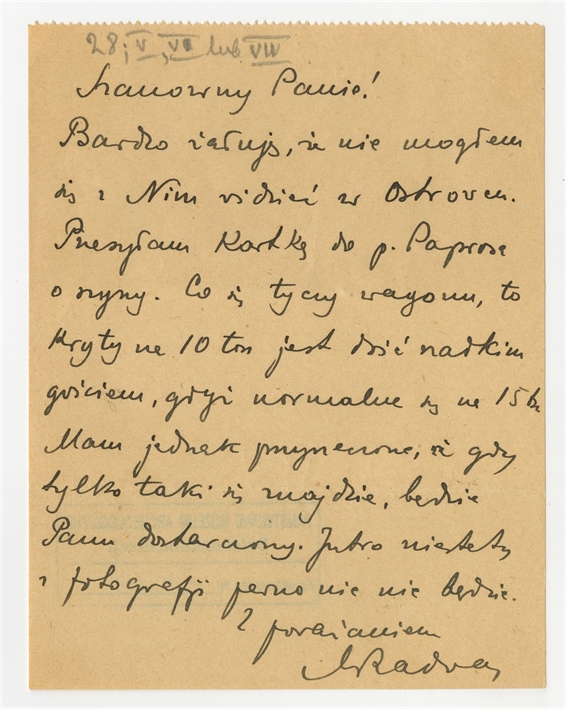 28; V, VII lub VIII
Szanowny Panie!
Bardzo żałuję, że nie mogłem
się z Nim widzieć w Ostrowcu.
Przesyłam kartkę do p.
o szyny. Co się tyczy wagonu, to
kryty na 10 ton jest dość rzadkim
gościem, gdyż normalne są na 15 tn
Mam jednak przyrzeczone, że gdy
tylko taki się znajdzie, będzie
Panu dostarczony. Jutro niestety
z fotografji pewno nic nie będzie.
Z poważaniem